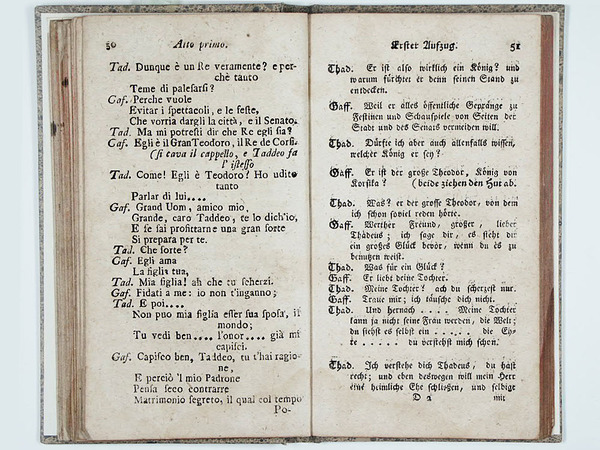 50 Atto primo.
Tad. Dunque è un Re veramente? e per-
chè tanto
Teme di palesarsi?
Gaf. Perche vuole
Evitar i spettacoli, e le feste,
Che vorria dargli la città, e il Senato.
Tad. Ma mi potresti dir che Re egli sia?
Gaf. Egli è il Gran Teodoro, il Re de Corsi.
(si cava il cappello, e Taddeo fa
l' istesso
Tad. Come! Egli è Teodoro? Ho udito
tanto
Parlar di lui....
Gaf. Grand Uom, amico mio,
Grande, caro Taddeo, te lo dich'io,
E se sai profittarne una gran sorte
Si prepara per te.
Tad. Che sorte?
Gaf. Egli ama
La figlia tua,
Tad. Mia figlia! ah che tu scherzi.
Gaf. Fidati a me: io non t'inganno;
Tad. E poi....
Non puo mia figlia esser sua sposa, il
mondo;
Tu vedi ben.... l'onor.... già mi
capisci.
Gaf. Capisco ben, Taddeo, tu t'hai ragio-
ne,
E perciò 'l mio Padrone
Pensa seco contrarre
Matrimonio segreto, il qual col tempo
Po-
Erster Aufzug. 51
Thad. Er ist also wirklich ein König? und
warum fürchtet er denn seinen Stand zu
entdecken.
Gaff. Weil er alles öffentliche Gepränge zu
Festinen und Schauspiele von Seiten der
Stadt und des Senats vermeiden will.
Thad. Dürfte ich aber auch allenfalls wissen,
welcher König er sey?
Gaff. Er ist der große Theodor, König von
Korsika? (beide ziehen den Hut ab.
Thad. Was? er der grosse Theodor, von dem
ich schon soviel reden hörte.
Gaff. Werther Freund, großer, lieber
Thadeus; ich sage dir, es steht dir
ein großes Glück bevor, wenn du es zu
benutzen weist.
Thad. Was für ein Glück?
Gaff. Er liebt deine Tochter.
Thad. Meine Tochter? ach du scherzest nur.
Gaff. Traue mir; ich täusche dich nicht.
Thad. Und hernach .... Meine Tochter
kann ja nicht seine Frau werden, die Welt;
du siehst es selbst ein ..... die Eh-
re ..... du verstehst mich schon.
Thad. Ich verstehe dich Thadeus, du hast
recht; und eben deswegen will mein Herr
eine heimliche Ehe schließen, und selbige
D 2 mit